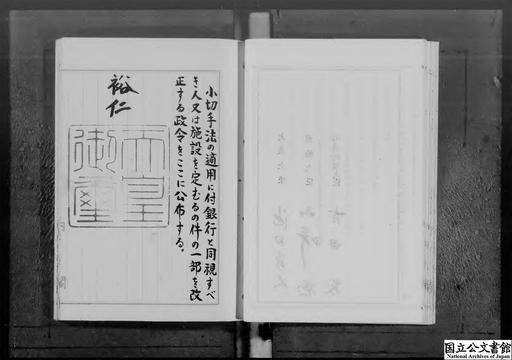 小切手法の適用に付銀行と同視すべ
き人又は施設を定むるの件の一部を改
正する政令をここに公布する。
裕仁
天皇御璽
国立公文書館
National Archives of Japan